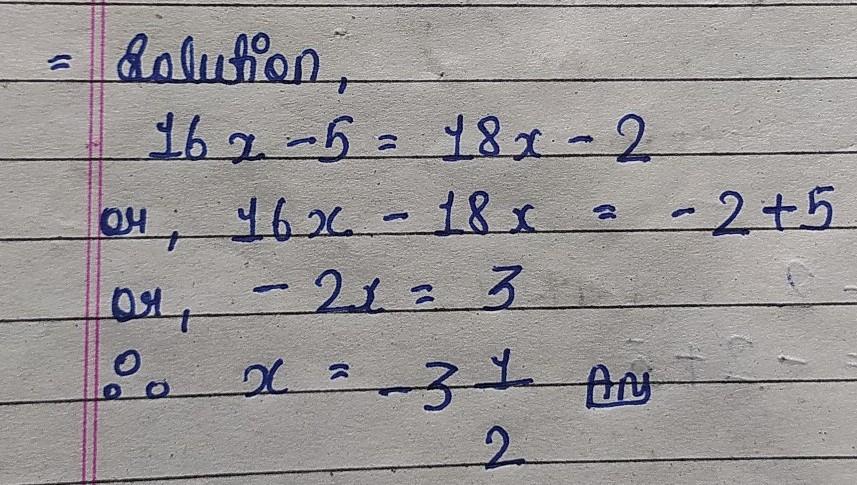 = Solution,
16x - 5 = 18x - 2
or, 16x - 18x = -2 + 5
or, -2x = 3
∴ x = -3 1/2 Ans